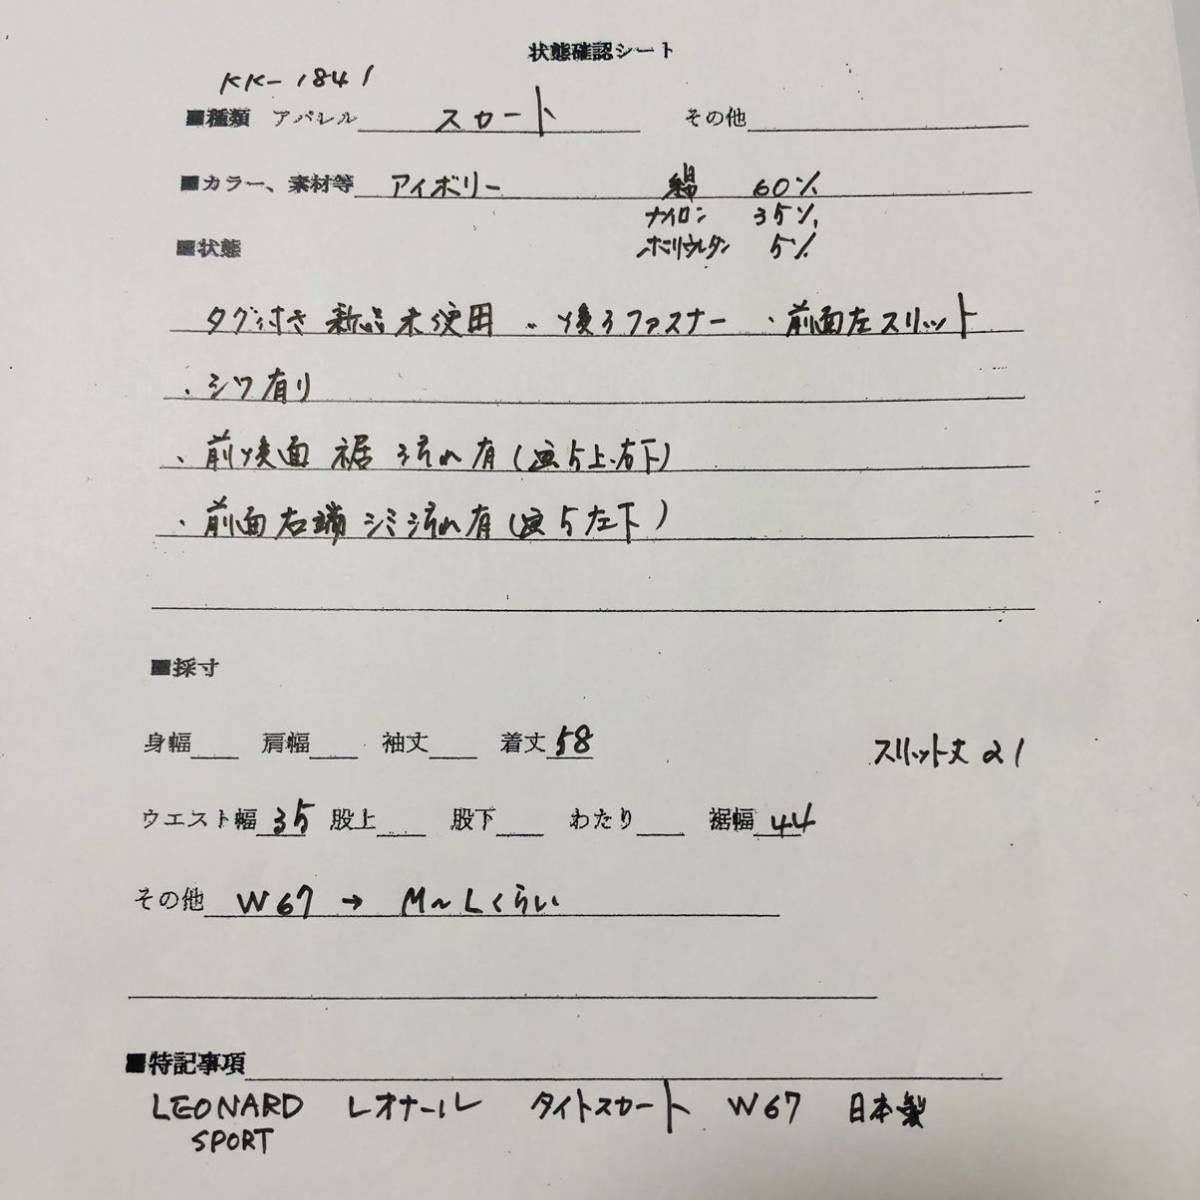 状態確認シート
KK-1841
■種類 アパレル スカート その他
■カラー、素材等 アイボリー 綿 60%
ナイロン 35%
ポリウレタン 5%
■状態
タグ付き 新品未使用 ・後ろファスナー ・前面左スリット
・シワ有り
・前後面 裾 汚れ有(画5上、右下)
・前面右端 シミ汚れ有(画5左下)
■採寸
身幅 肩幅 袖丈 着丈 58
スリット丈 21
ウエスト幅 35 股上 股下 わたり 裾幅 44
その他 W67 → M~Lくらい
■特記事項
LEONARD レオナール タイトスカート W67 日本製
SPORT